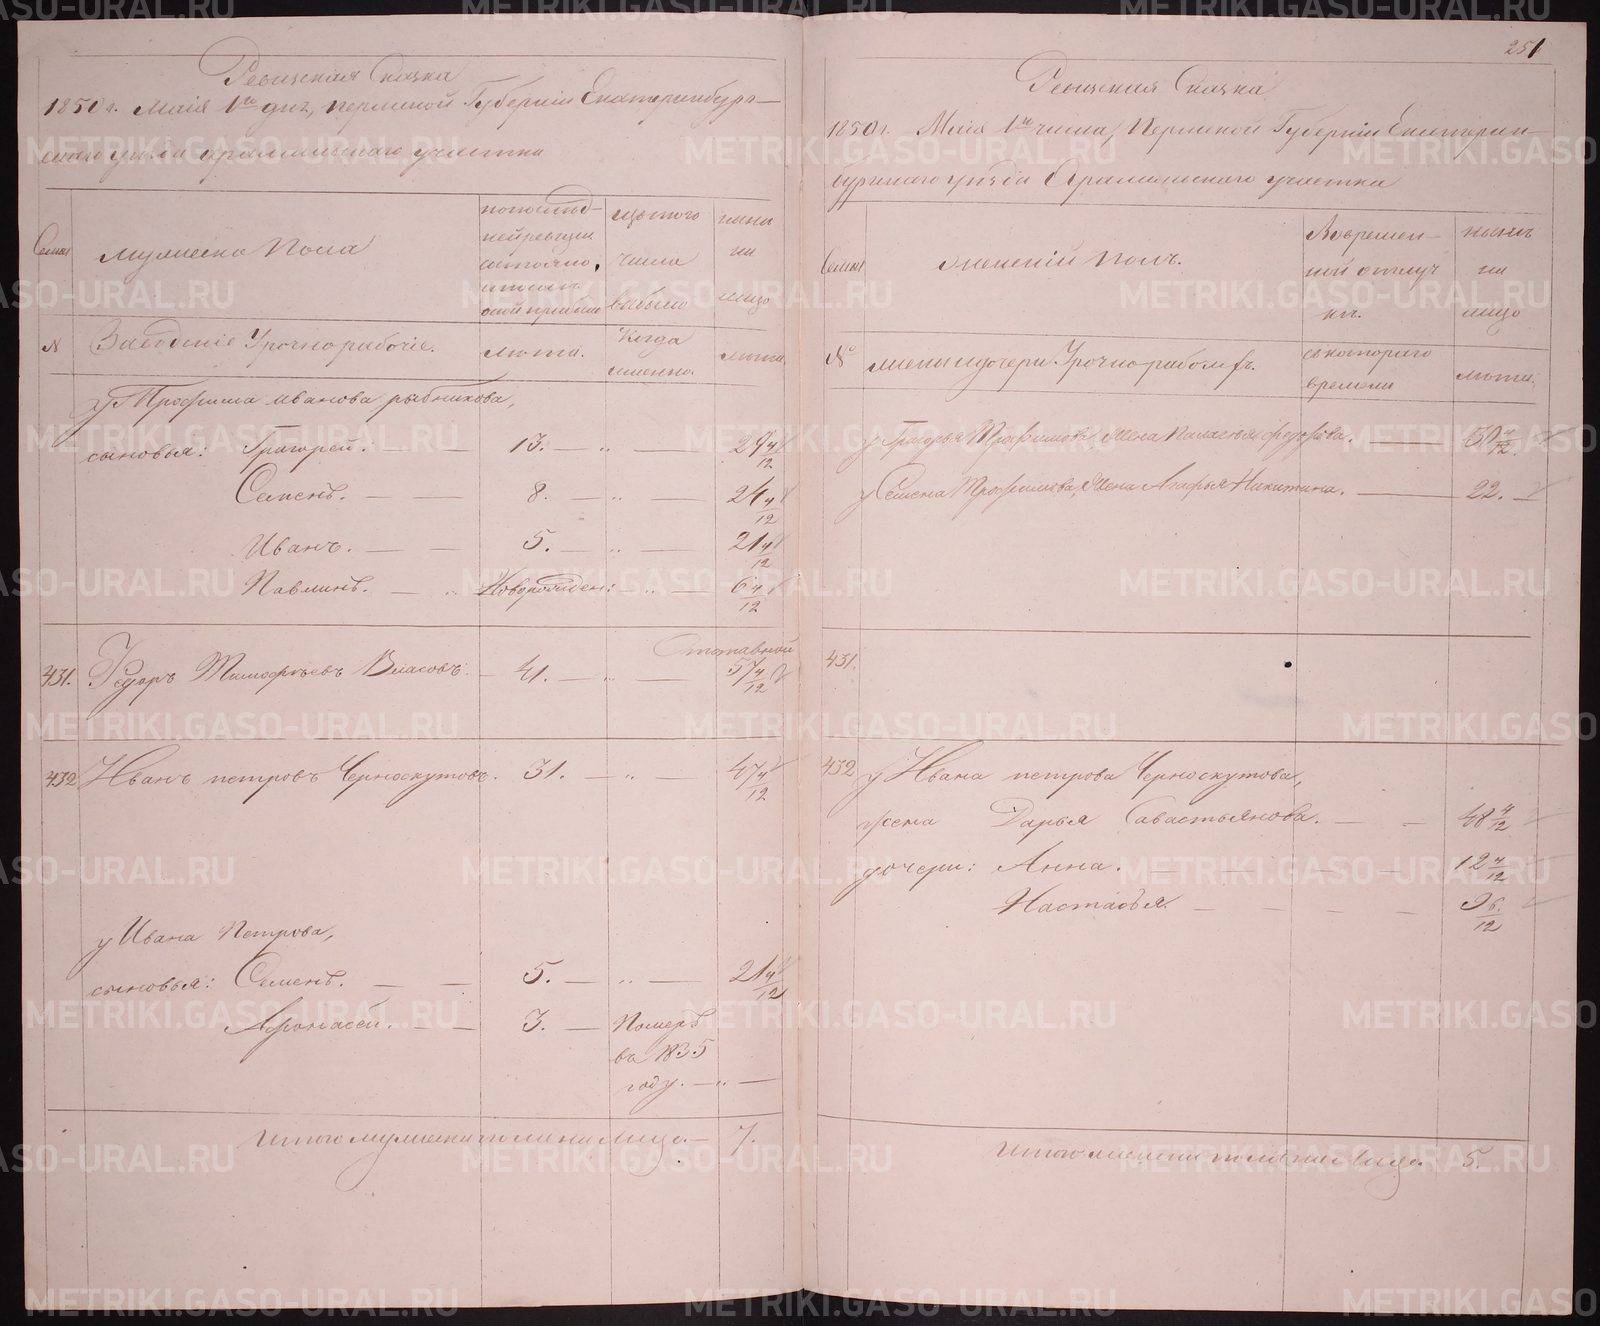 251
Ревизская Сказка
1850 г. Маія 1го дня, Пермской Губерніи Екатеринбург—
скаго уезда Арамильскаго участка
Семьи
мужеска Пола
по последней ревизіи состояло, и после оной прибыло
из того числа выбыло
ныне на лицо
№
Заводскіе Урочно рабочіе.
лета.
Когда именно.
лета.
у Трофима Иванова рыбникова,
сыновья: Григорей. — — 13. — „ — 29 4/12
Семенъ. — — 8. — „ — 24 4/12
Иванъ. — — 5. — „ — 21 4/12
Павлинъ. — „ Новорожден: „ — 6 4/12
Отставной
431. Федоръ Тимофеевъ Власовъ. — 41. — „ — 57 4/12
432 Иванъ петровъ Черноскутовъ. 31. — „ — 47 4/12
у Ивана Петрова,
сыновья: Семенъ. — — 5. — „ — 21 4/12
Афонасей. — — 3. — Померъ
въ 1835
году. — „ —
Итого мужеска пола на лицо — 7.
Ревизская Сказка
1850 г. Маія 1го числа, Пермской Губерніи Екатерин—
бургскаго уезда Арамильскаго участка
Семьи
женскій полъ.
Во времен—
ной отлуч
ке.
ныне
на
лицо
№
жены и дочери Урочно-рабочихъ.
с котораго
времени
лета.
у Григорья Трофимова, жена Пелагея федорова. — 30 4/12
у Семена Трофимова, жена Агафья Никитина. — 22. —
431.
432 у Ивана петрова Черноскутова,
жена Дарья Савастьянова. — — 48 4/12
дочери: Анна. — — — — 12 4/12
Настасья. — — — — 9 6/12
Итого женска пола на лицо 5.